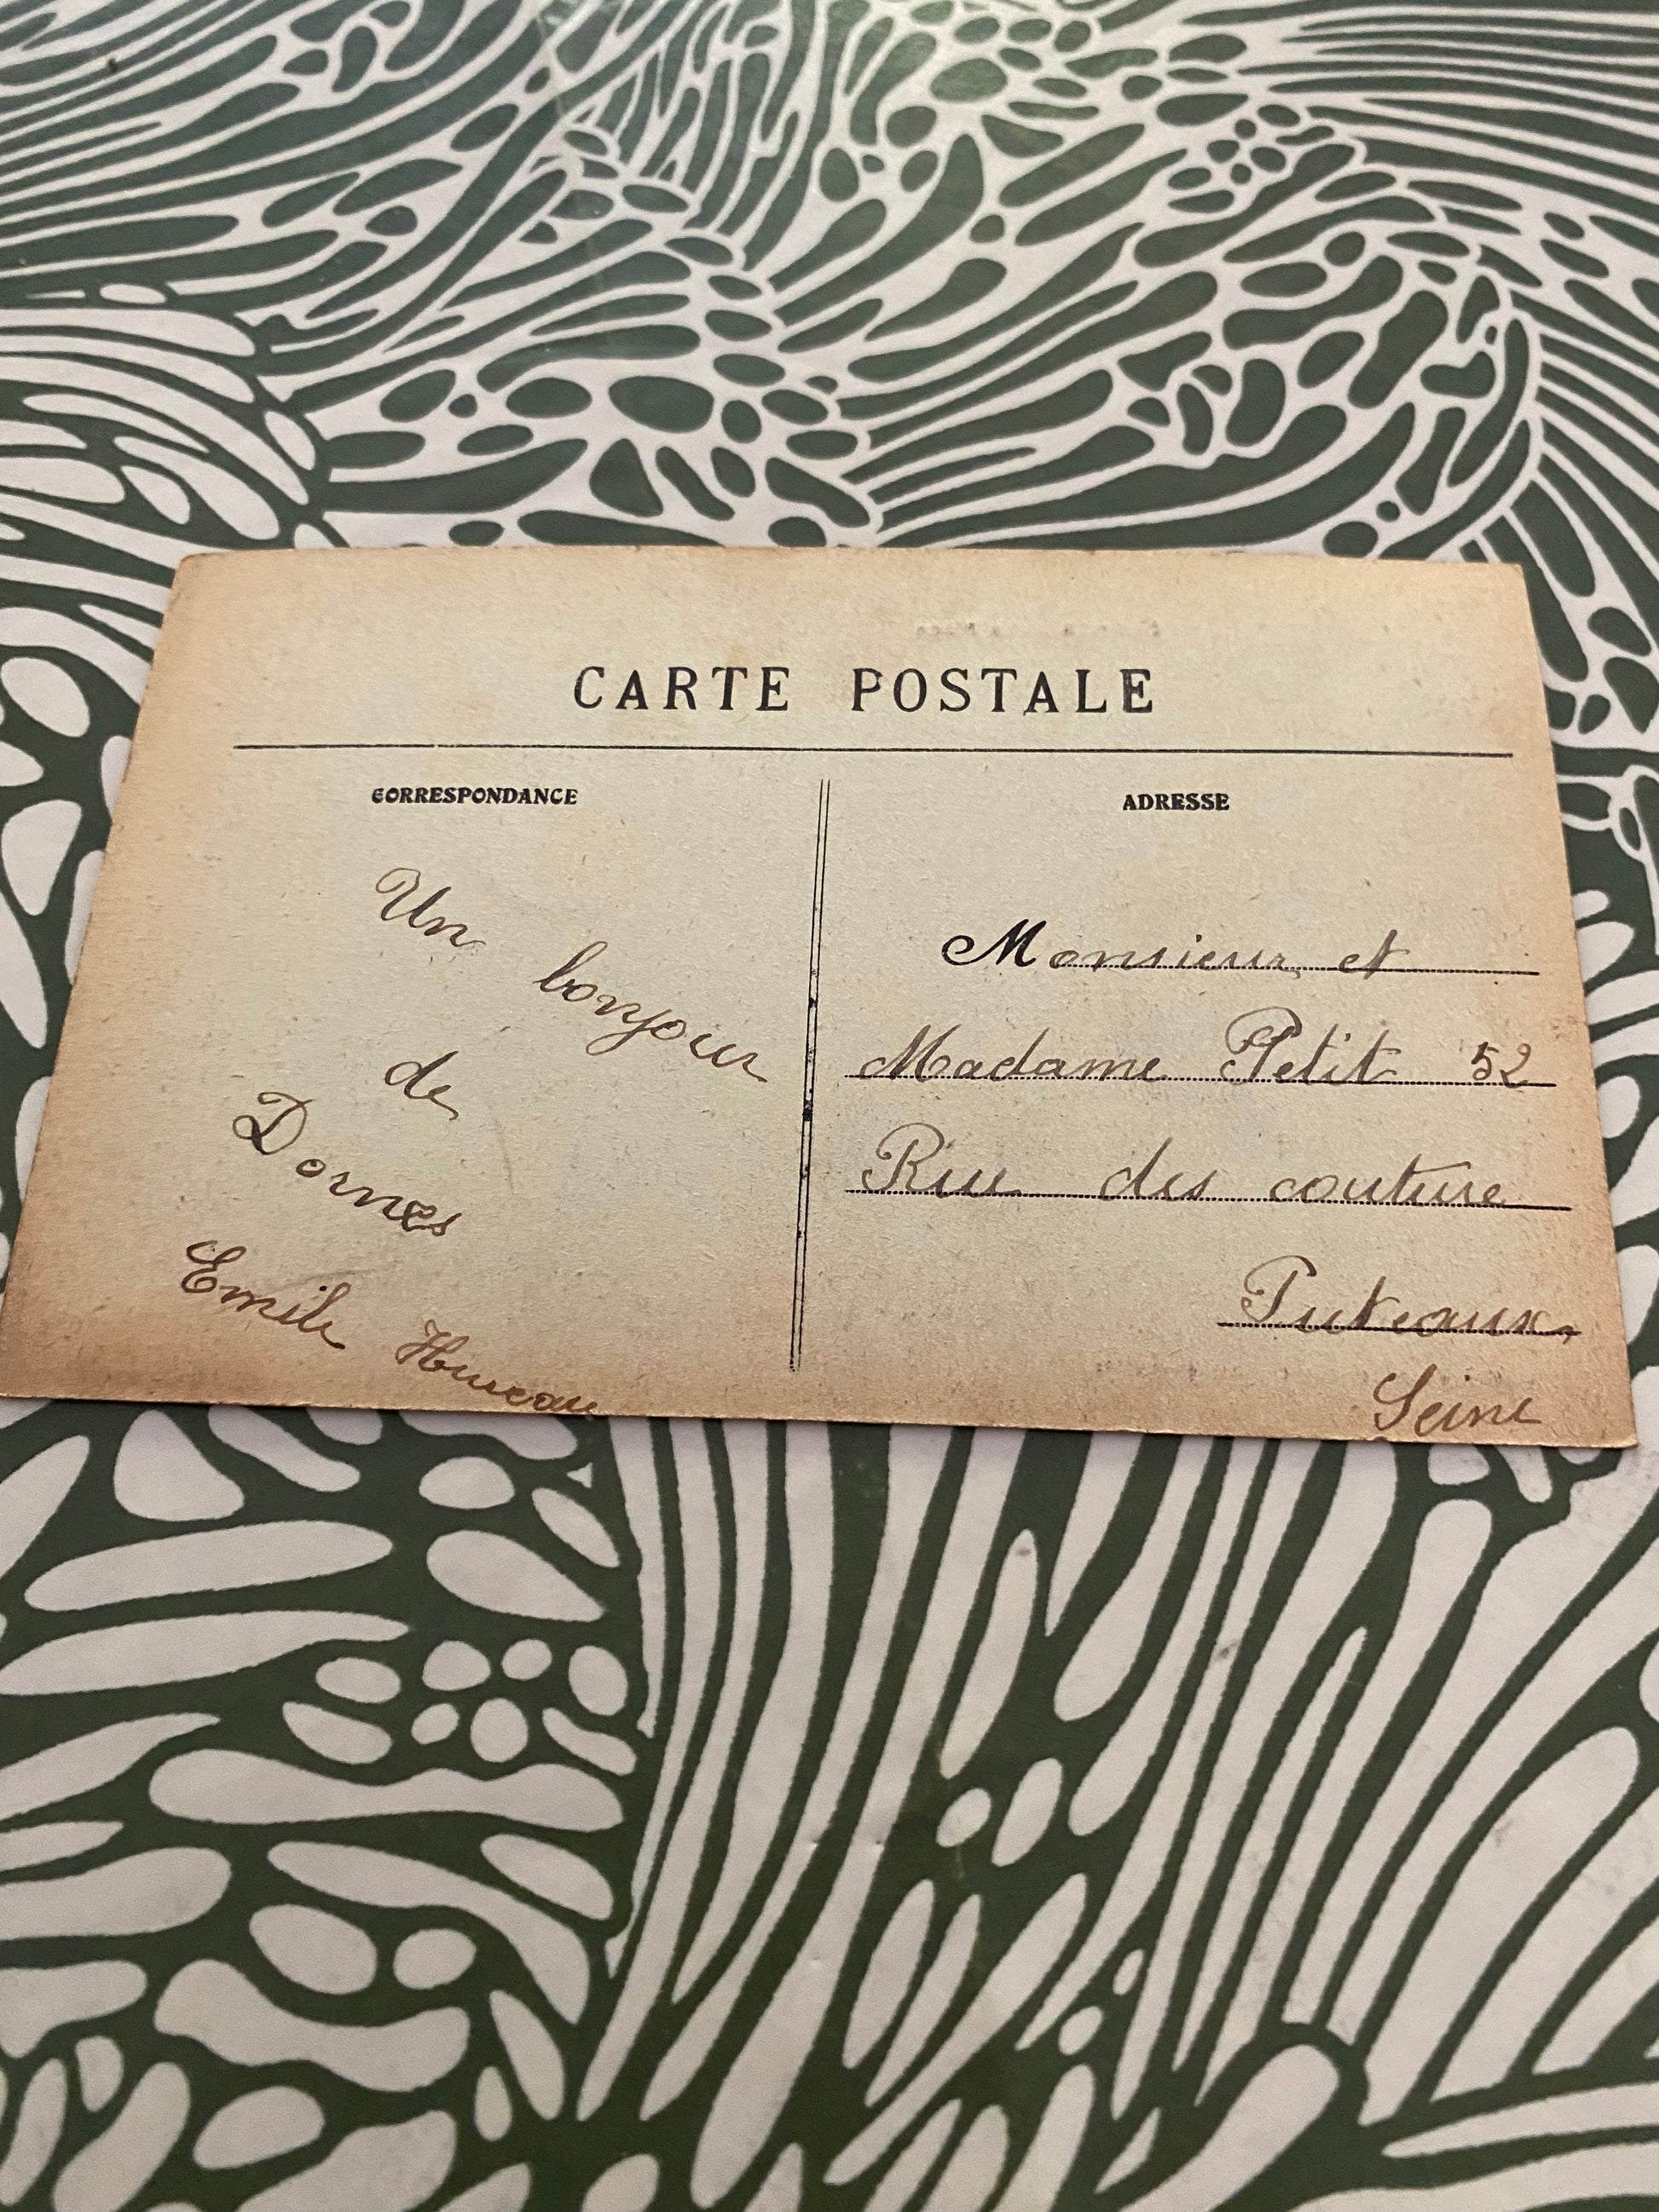 CARTE POSTALE
CORRESPONDANCE
Un bonjour
de
Dornes
Emile
ADRESSE
Monsieur et
Madame Petit 52
Rue des couture
Puteaux
Seine